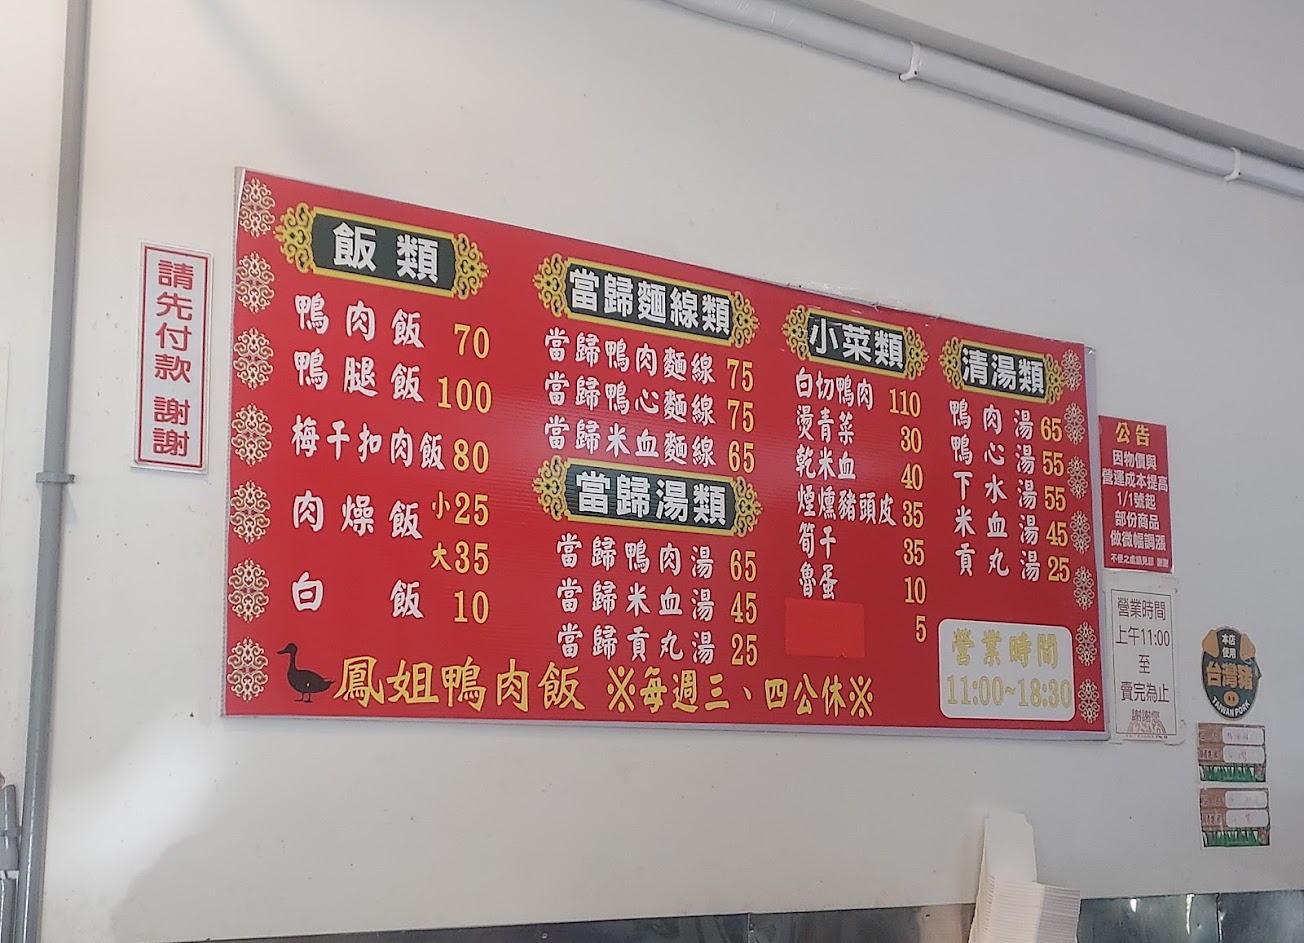 請先付款 謝謝
飯類
鴨肉飯 70
鴨腿飯 100
梅干扣肉飯 80
肉燥飯 小25
大35
白飯 10
當歸麵線類
當歸鴨肉麵線 75
當歸鴨心麵線 75
當歸米血麵線 65
當歸湯類
當歸鴨肉湯 65
當歸米血湯 45
當歸貢丸湯 25
小菜類
白切鴨肉 110
燙青菜 30
乾米血 40
煙燻豬頭皮 35
筍干 35
魯蛋 10
5
清湯類
鴨肉湯 65
鴨心湯 55
下水湯 55
米血湯 45
貢丸湯 25
營業時間
11:00~18:30
鳳姐鴨肉飯 ※每週三、四公休※
公告
因物價與
營運成本提高
1/1號起
部份商品
做微幅調漲
不便之處請見諒 謝謝
營業時間
上午11:00
至
賣完為止
謝謝您
本店
使用
台灣豬
TAIWAN PORK